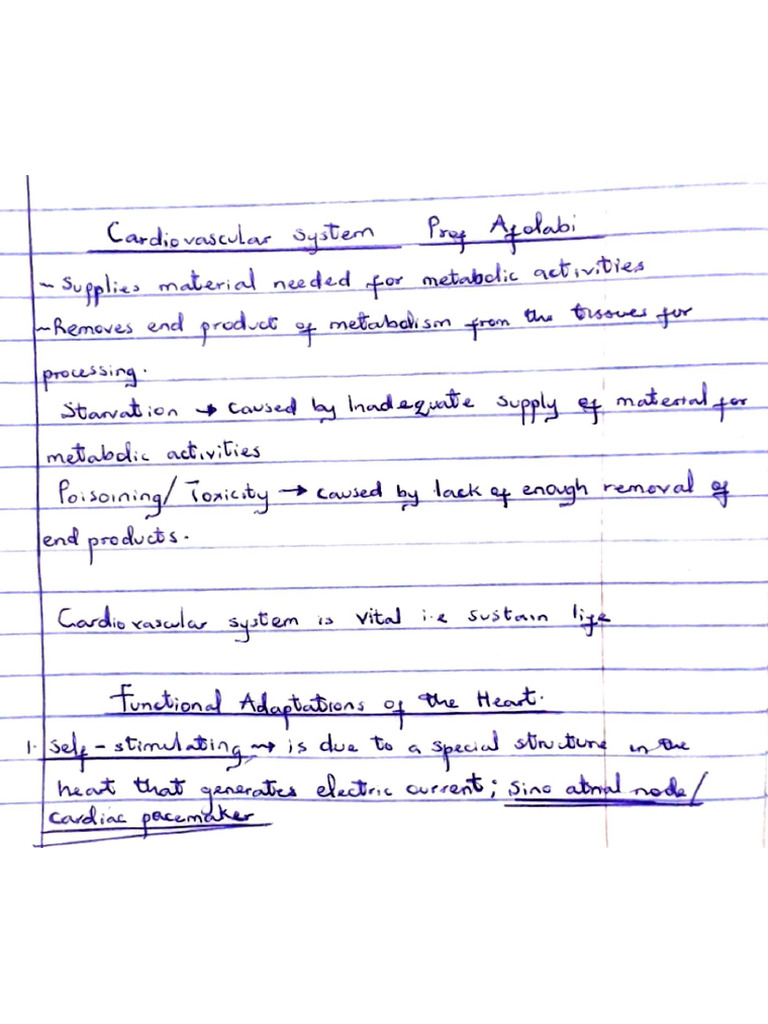 Cardiovascular system Prof Afolabi
- Supplies material needed for metabolic activities
- Removes end product of metabolism from the tissues for
processing.
Starvation → caused by Inadequate supply of material for
metabolic activities
Poisoining/Toxicity → caused by lack of enough removal of
end products.
Cardiovascular system is vital i.e sustain life
Functional Adaptations of the Heart.
1. Self-stimulating → is due to a special structure in the
heart that generates electric current; Sino atrial node/
cardiac pacemaker